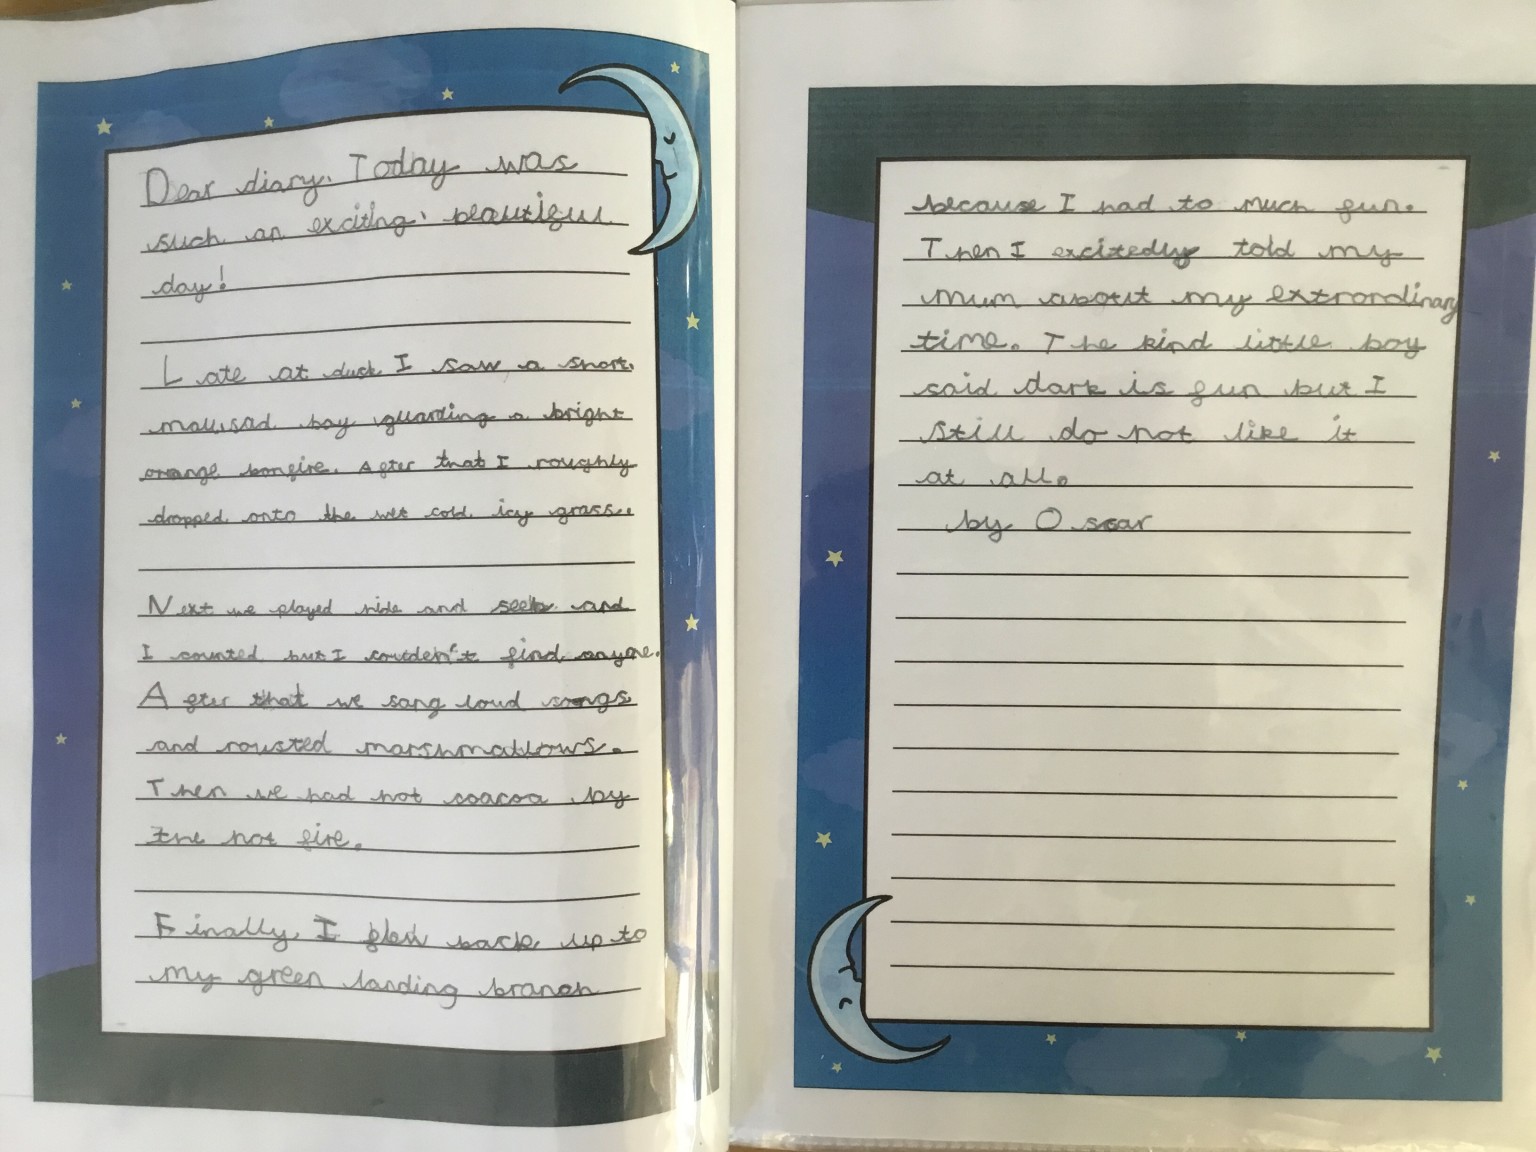 Dear diary. Today was
such an exciting, beautifull
day!
Late at dusk I saw a short,
small, sad boy guarding a bright
orange bonfire. After that I roughly
dropped onto the wet cold icy grass.
Next we played hide and seek and
I counted but I coulden't find anyone.
After that we sang loud songs
and rousted marshmallows.
Then we had hot coacoa by
the hot fire.
Finally, I flew back up to
my green landing branch
because I had to much fun.
Then I excitedly told my
mum about my extrordinary
time. The kind little boy
said dark is fun but I
still do not like it
at all.
by Oscar